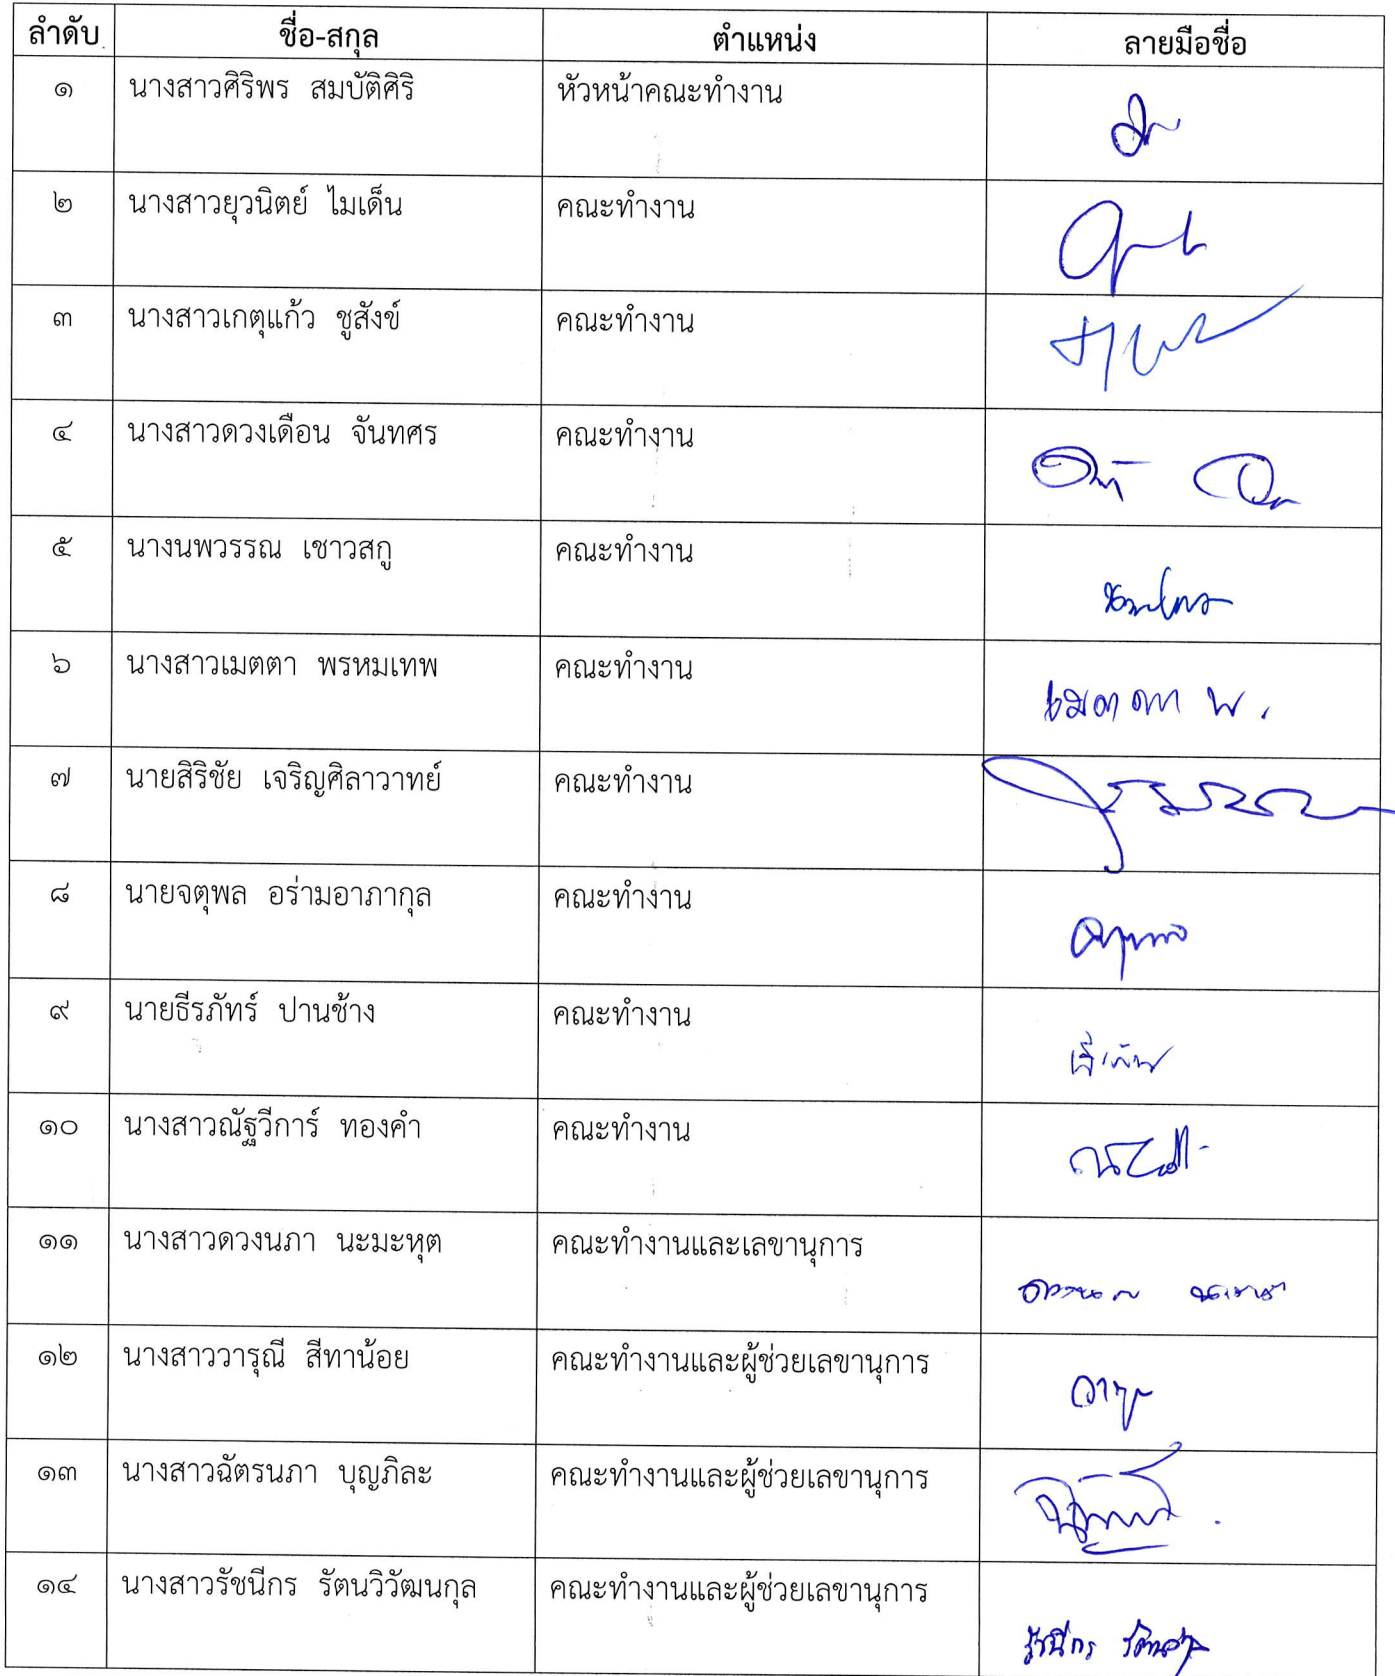 ลำดับ ชื่อ-สกุล ตำแหน่ง ลายมือชื่อ
๑ นางสาวศิริพร สมบัติศิริ หัวหน้าคณะทำงาน
๒ นางสาวยุวนิตย์ ไมเด็น คณะทำงาน
๓ นางสาวเกตุแก้ว ชูสังข์ คณะทำงาน
๔ นางสาวดวงเดือน จันทศร คณะทำงาน
๕ นางนพวรรณ เชาวสกู คณะทำงาน
๖ นางสาวเมตตา พรหมเทพ คณะทำงาน เมตตา พ.
๗ นายสิริชัย เจริญศิลาวาทย์ คณะทำงาน
๘ นายจตุพล อร่ามอาภากุล คณะทำงาน จตุพล
๙ นายธีรภัทร์ ปานช้าง คณะทำงาน
๑๐ นางสาวณัฐวีการ์ ทองคำ คณะทำงาน
๑๑ นางสาวดวงนภา นะมะหุต คณะทำงานและเลขานุการ
๑๒ นางสาววารุณี สีทาน้อย คณะทำงานและผู้ช่วยเลขานุการ
๑๓ นางสาวฉัตรนภา บุญภิละ คณะทำงานและผู้ช่วยเลขานุการ
๑๔ นางสาวรัชนีกร รัตนวิวัฒนกุล คณะทำงานและผู้ช่วยเลขานุการ รัชนีกร